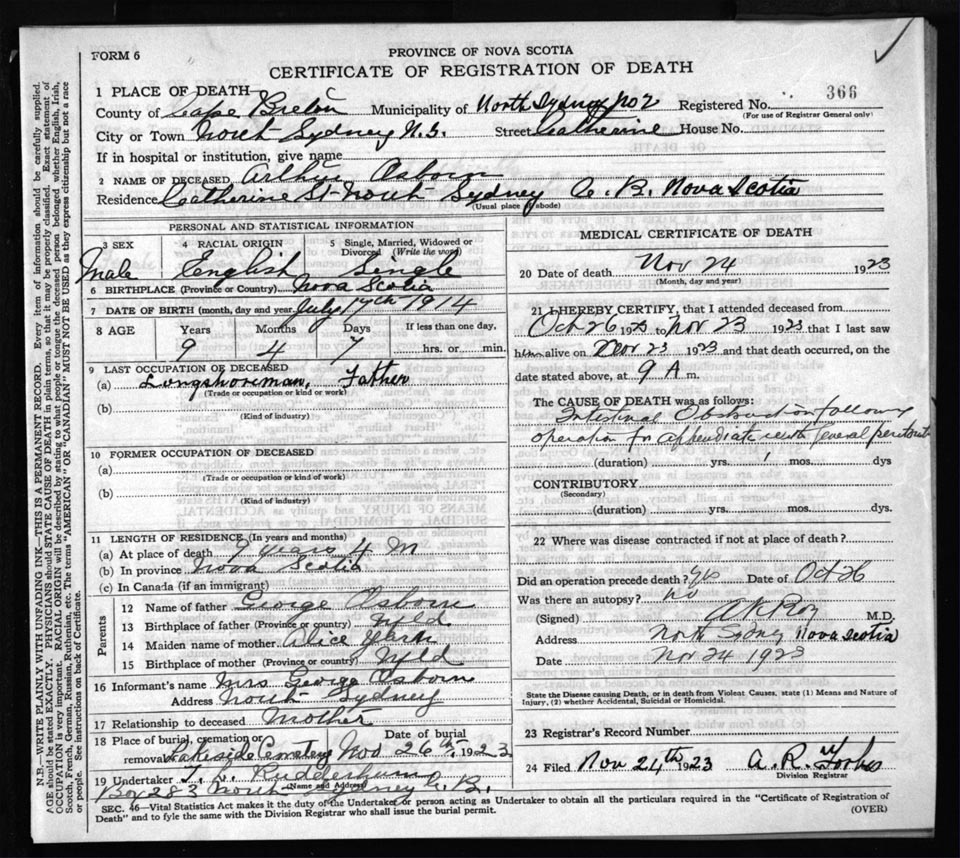 FORM 6
PROVINCE OF NOVA SCOTIA
CERTIFICATE OF REGISTRATION OF DEATH
1 PLACE OF DEATH
County of Cape Breton Municipality of North Sydney Registered No. 366
(For use of Registrar General only)
City or Town North Sydney N.S. Street Catherine House No.
If in hospital or institution, give name
2 NAME OF DECEASED Arthur Osborn
Residence Catherine St North Sydney C. B. Nova Scotia
(Usual place of abode)
PERSONAL AND STATISTICAL INFORMATION
3 SEX 4 RACIAL ORIGIN 5 Single, Married, Widowed or Divorced (Write the word)
Male English Single
6 BIRTHPLACE (Province or Country) Nova Scotia
7 DATE OF BIRTH (month, day and year) July 17th 1914
8 AGE Years Months Days If less than one day,
9 4 7 hrs. or min.
9 LAST OCCUPATION OF DECEASED
(a) Longshoreman, Father
(Trade or occupation or kind or work)
(b)
(Kind of industry)
10 FORMER OCCUPATION OF DECEASED
(a)
(Trade or occupation or kind of work)
(b)
(Kind of industry)
11 LENGTH OF RESIDENCE (In years and months)
(a) At place of death 9 years 4 M
(b) In province Nova Scotia
(c) In Canada (if an immigrant)
Parents
12 Name of father George Osborn
13 Birthplace of father (Province or country) Nfld
14 Maiden name of mother Alice
15 Birthplace of mother (Province or country) Nfld
16 Informant's name Mrs George Osborn
Address North Sydney
17 Relationship to deceased Mother
18 Place of burial, cremation or removal Date of burial
Lakeside Cemetery Nov 26th, 1923
19 Undertaker
(Name and Address)
Box 283 North Sydney C. B.
MEDICAL CERTIFICATE OF DEATH
20 Date of death Nov 24 1923
(Month, day and year)
21 I HEREBY CERTIFY, that I attended deceased from
Oct 26 192 to Nov 23 1923 that I last saw
him alive on Nov 23 1923 and that death occurred, on the
date stated above, at 9 A m.
The CAUSE OF DEATH was as follows:
Intestinal Obstruction following
operation for with general peritonitis
(duration) yrs. 1 mos. dys
CONTRIBUTORY
(Secondary)
(duration) yrs. mos. dys
22 Where was disease contracted if not at place of death?
Did an operation precede death? Yes Date of Oct 26
Was there an autopsy? No
(Signed) M.D.
Address North Sydney Nova Scotia
Date Nov 24 1923
State the Disease causing Death, or in death from Violent Causes, state (1) Means and Nature of Injury, (2) whether Accidental, Suicidal or Homicidal.
23 Registrar's Record Number
24 Filed Nov 24th 1923 A. R. Forbes
Division Registrar
SEC. 46—Vital Statistics Act makes it the duty of the Undertaker or person acting as Undertaker to obtain all the particulars required in the "Certificate of Registration of
Death" and to fyle the same with the Division Registrar who shall issue the burial permit.
(OVER)
N.B.—WRITE PLAINLY WITH UNFADING INK—THIS IS A PERMANENT RECORD. Every item of information should be carefully supplied.
AGE should be stated EXACTLY. PHYSICIANS should STATE CAUSE OF DEATH in plain terms, so that it may be properly classified. Exact statement of
OCCUPATION is very important. RACIAL ORIGIN will be described by stating to what people or tongue the deceased person belonged whether English, Irish,
Scotch, French, German, Russian, Ruthenian, etc. The terms "AMERICAN" OR "CANADIAN" MUST NOT BE USED as they express citizenship but not a race
or people. See instructions on back of Certificate.